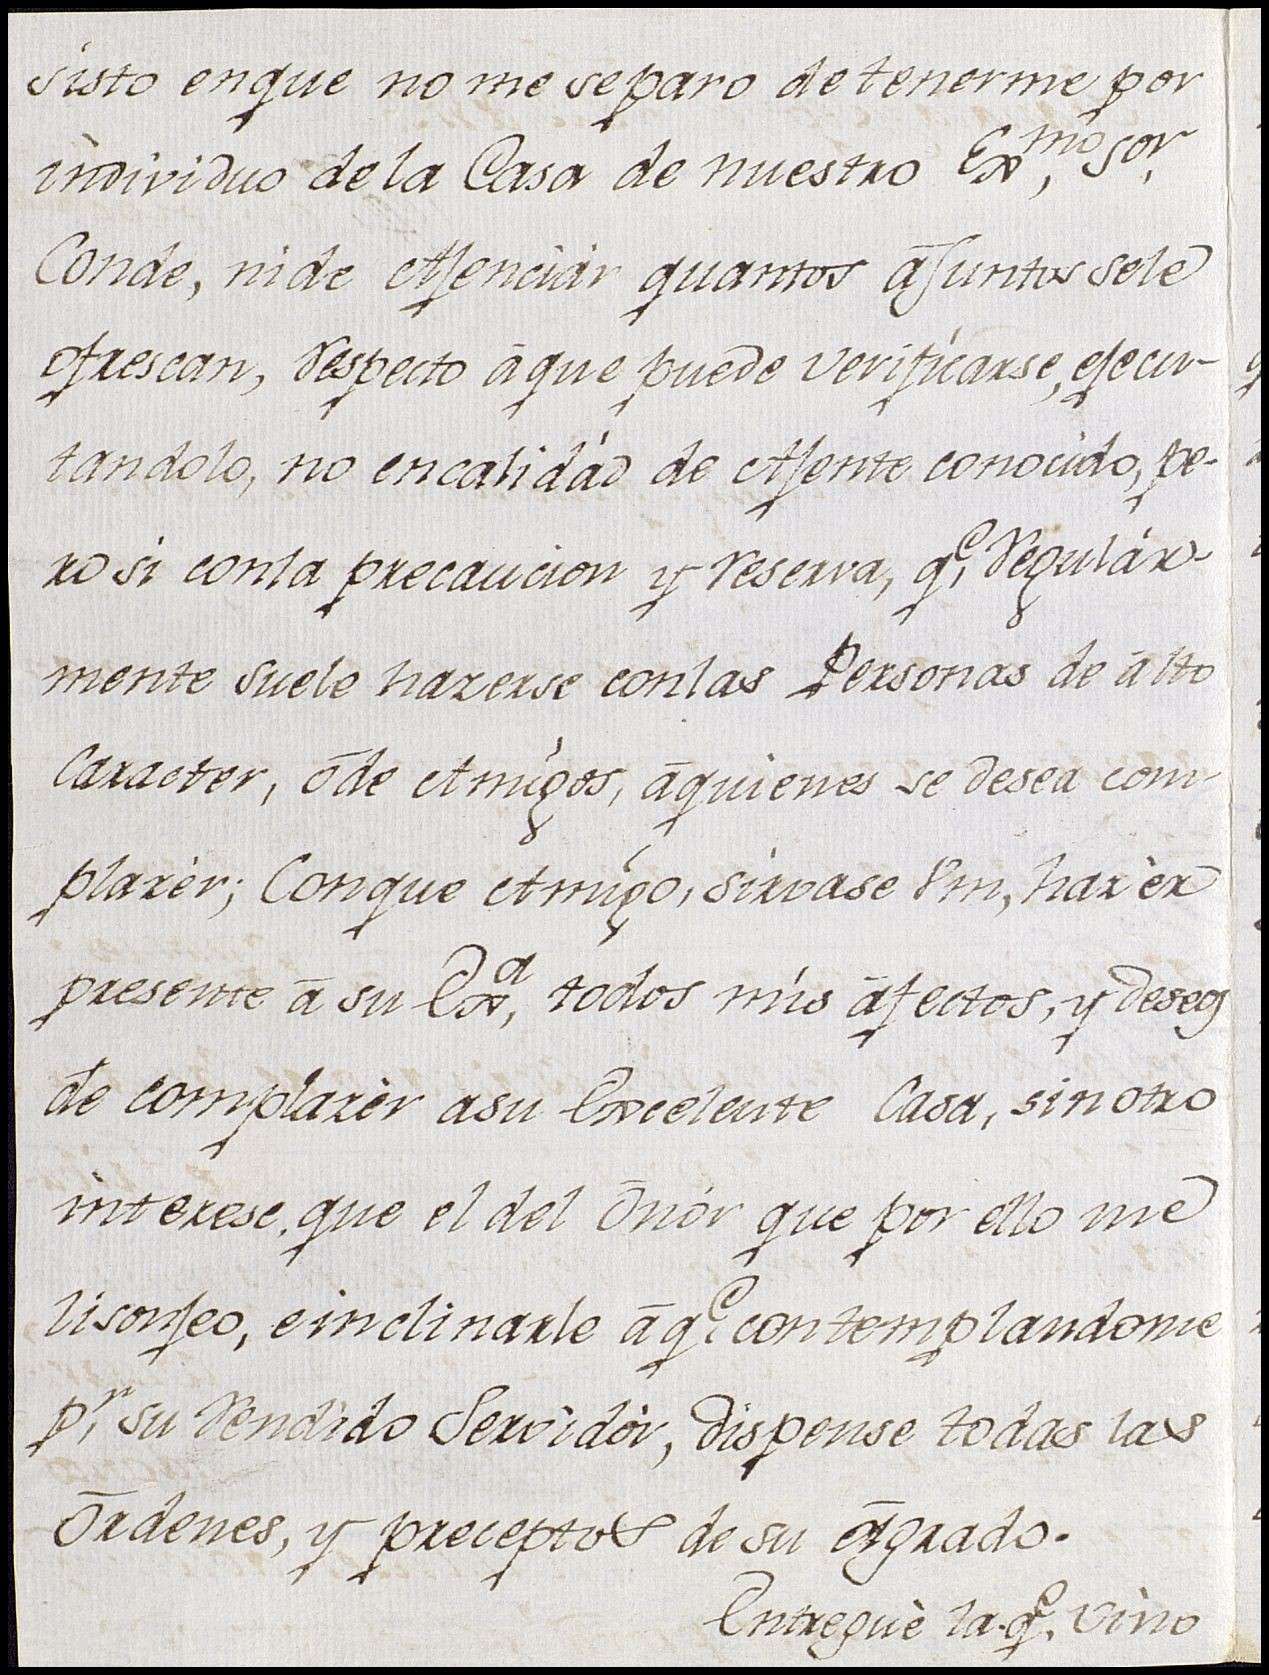 sisto enque no me separo de tenerme por
individuo de la Casa de nuestro Exmo, Sor,
Conde, ni de Ajenciár quantos āsuntos sele
ofrescan, respecto āque puede verificarse, ejecu-
tandolo, no encalidád de Ajente conocido, pe-
ro si conla precaucion y reserva, qe, regulár-
mente suele hazerse conlas Personas de ālto
Caracter, ōde Amígos, āquienes se desea com-
plazèr; Conque Amígo, sírvase Vm, hazèr
presente ā su Exa, todos mís āfectos, y deseos
de complazèr asu Excelente Casa, sin otro
interese, que el del Ōnór que por ello me
lisonjeo, e inclinarle āqe, contemplandome
pr, su rendido Servidór, dispense todas las
Ōrdenes, y preceptos de su āgrado.
Entreguè la qe, vino